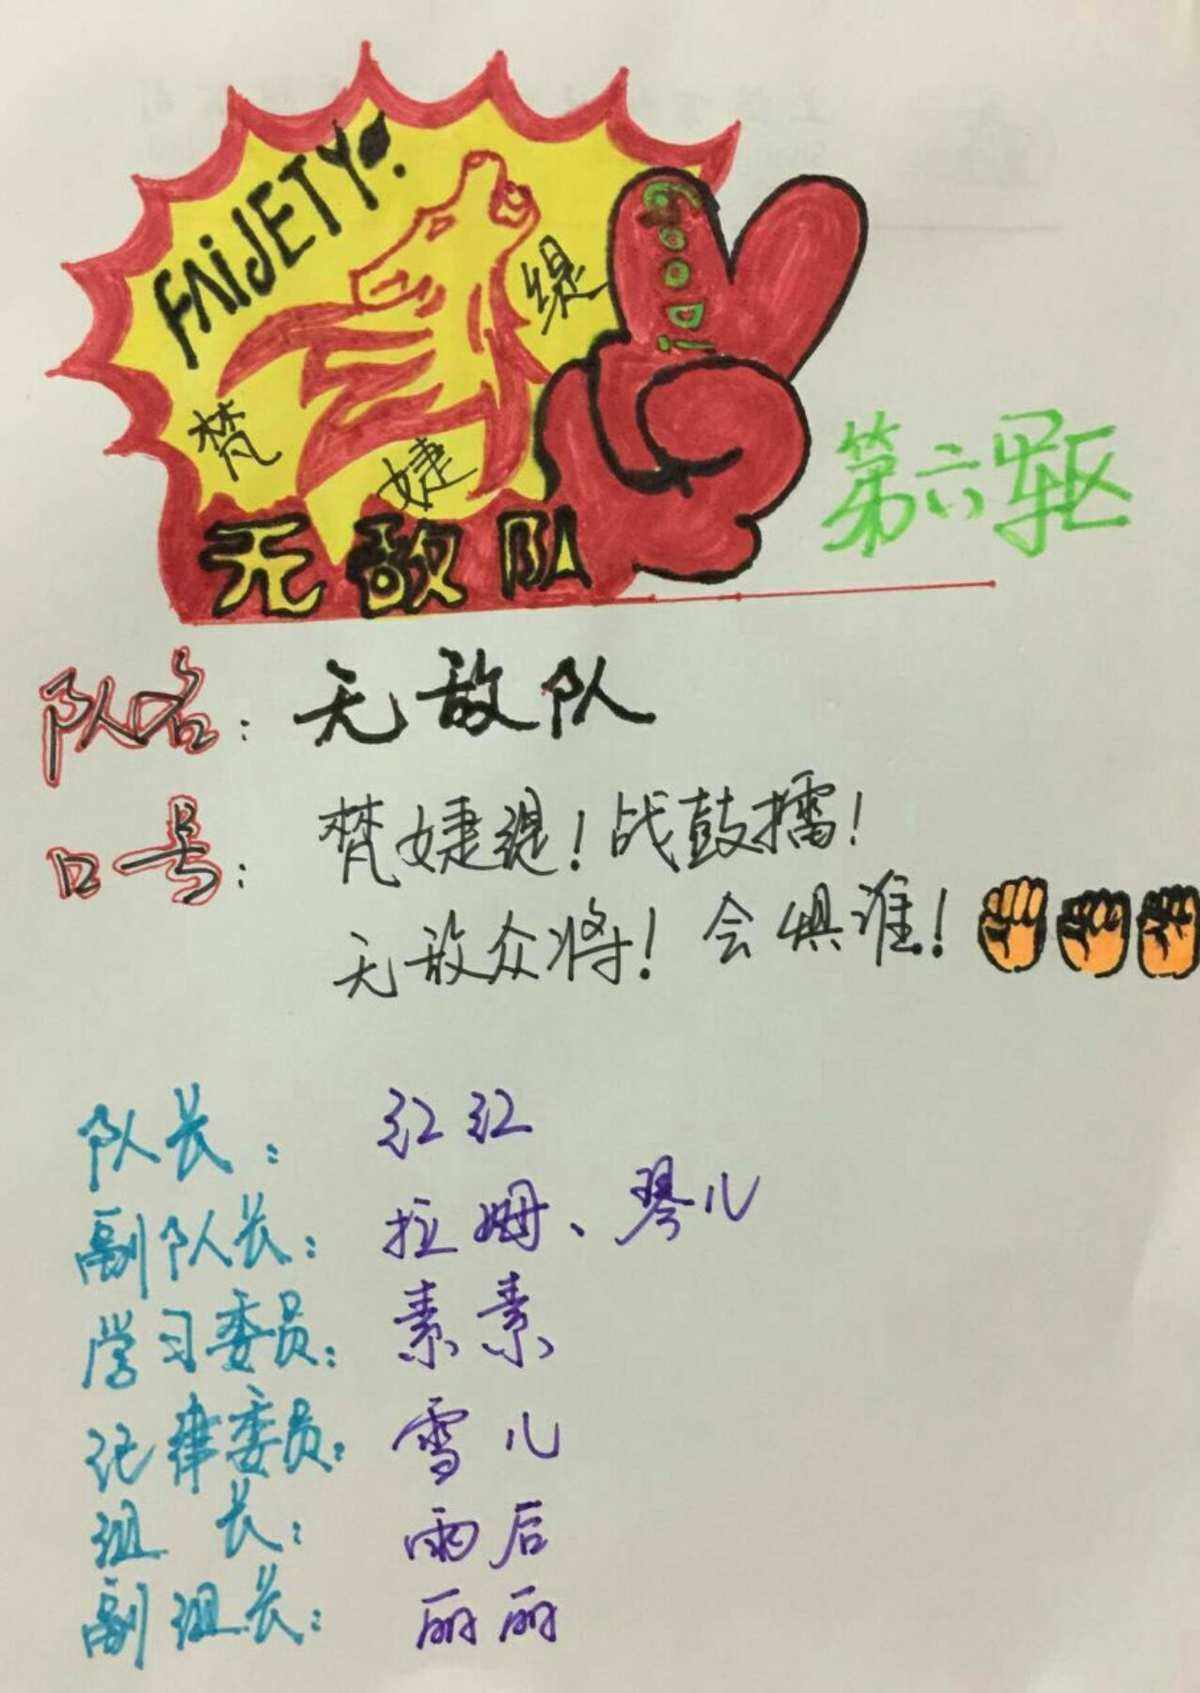 FAIJETY
缇
good!
梵
婕
第六驱
无敌队
队名：无敌队
口号：梵婕缇！战鼓擂！
无敌众将！会惧谁！
队长：红红
副队长：拉姆、琴儿
学习委员：素素
纪律委员：雪儿
组长：雨后
副组长：丽丽